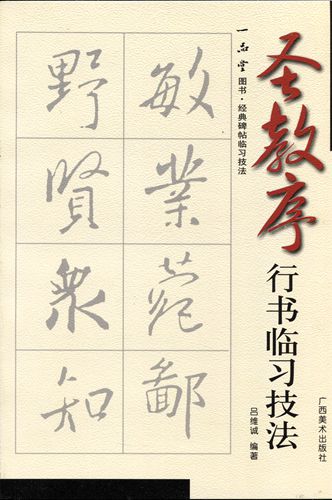 圣教序
行书临习技法
一品堂 图书·经典碑帖临习技法
敏
業
鄙
野
賢
衆
知
吕维诚 编著
广西美术出版社